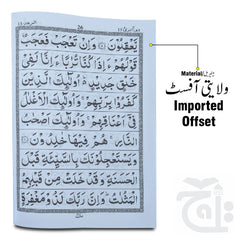 26
يَعْقِلُوْنَ ۝ وَاِنْ تَعْجَبْ فَعَجَبٌ
قَوْلُهُمْ ءَاِذَا كُنَّا تُرٰبًا ءَاِنَّا لَفِیْ
خَلْقٍ جَدِیْدٍ اُولٰٓئِكَ الَّذِیْنَ
كَفَرُوْا بِرَبِّهِمْ وَاُولٰٓئِكَ الْاَغْلٰلُ
فِیْۤ اَعْنَاقِهِمْ وَاُولٰٓئِكَ اَصْحٰبُ
النَّارِ هُمْ فِیْهَا خٰلِدُوْنَ ۝
وَیَسْتَعْجِلُوْنَكَ بِالسَّیِّئَةِ قَبْلَ
الْحَسَنَةِ وَقَدْ خَلَتْ مِنْ قَبْلِهِمُ
الْمَثُلٰتُ وَاِنَّ رَبَّكَ لَذُوْ مَغْفِرَةٍ
Material
ولایتی آفسٹ
Imported
Offset